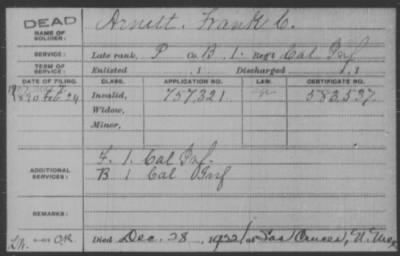 DEAD
NAME OF SOLDIER: Arnett, Frank C.
SERVICE: Late rank, P Co. B, 1. Reg't Cal Inf
TERM OF SERVICE: Enlisted , 1 Discharged , 1
DATE OF FILING. CLASS. APPLICATION NO. LAW. CERTIFICATE NO.
1890 Feb. 24 Invalid, 757,321 583,537
Widow,
Minor,
ADDITIONAL SERVICES:
F. 1. Cal Inf.
B 1 Cal Inf
REMARKS:
Died Dec. 28, 1922, at Las Cruces, N. Mex